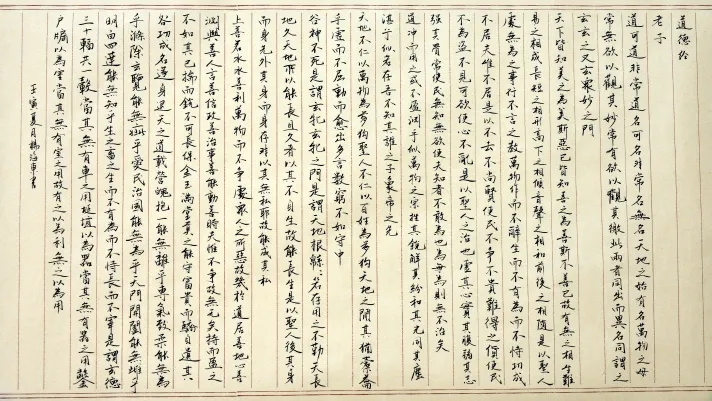 道德经
老子
道可道非常道名可名非常名無名天地之始有名萬物之母
常無欲以觀其妙常有欲以觀其徼此兩者同出而異名同謂之
玄玄之又玄衆妙之門
天下皆知美之為美斯惡已皆知善之為善斯不善已故有無之相生難
易之相成長短之相形高下之相傾音聲之相和前後之相隨是以聖人
處無為之事行不言之教萬物作而不辭生而不有為而不恃功成
不居夫唯不居是以不去不尚賢使民不爭不貴難得之貨使民
不為盜不見可欲使心不亂是以聖人之治也虛其心實其腹弱其志
強其骨常使民無知無欲使夫知者不敢為也為無為則無不治矣
道冲而用之或不盈淵乎似萬物之宗挫其銳解其紛和其光同其塵
湛乎似若在吾不知其誰之子象帝之先
天地不仁以萬物為芻狗聖人不仁以百姓為芻狗天地之間其猶橐籥
乎虛而不屈動而愈出多言數窮不如守中
谷神不死是謂玄牝玄牝之門是謂天地根綿綿若存用之不勤天長
地久天地所以能長且久者以其不自生故能長生是以聖人後其身
而身先外其身而身存非以其無私耶故能成其私
上善若水水善利萬物而不爭處衆人之所惡故幾於道居善地心善
淵與善人言善信政善治事善能動善時夫唯不爭故無尤矣持而盈之
不如其已揣而銳不可長保金玉滿堂莫之能守富貴而驕自遺其
咎功成名遂身退天之道載營魄抱一能無離乎專氣致柔能無為
乎滌除玄覽能無疵乎愛民治國能無為乎天門開闔能無雌乎
明白四達能無知乎生之畜之生而不有為而不恃長而不宰是謂玄德
三十輻共一轂當其無有車之用埏埴以為器當其無有器之用鑿
戶牖以為室當其無有室之用故有之以為利無之以為用
壬寅夏月楊海書